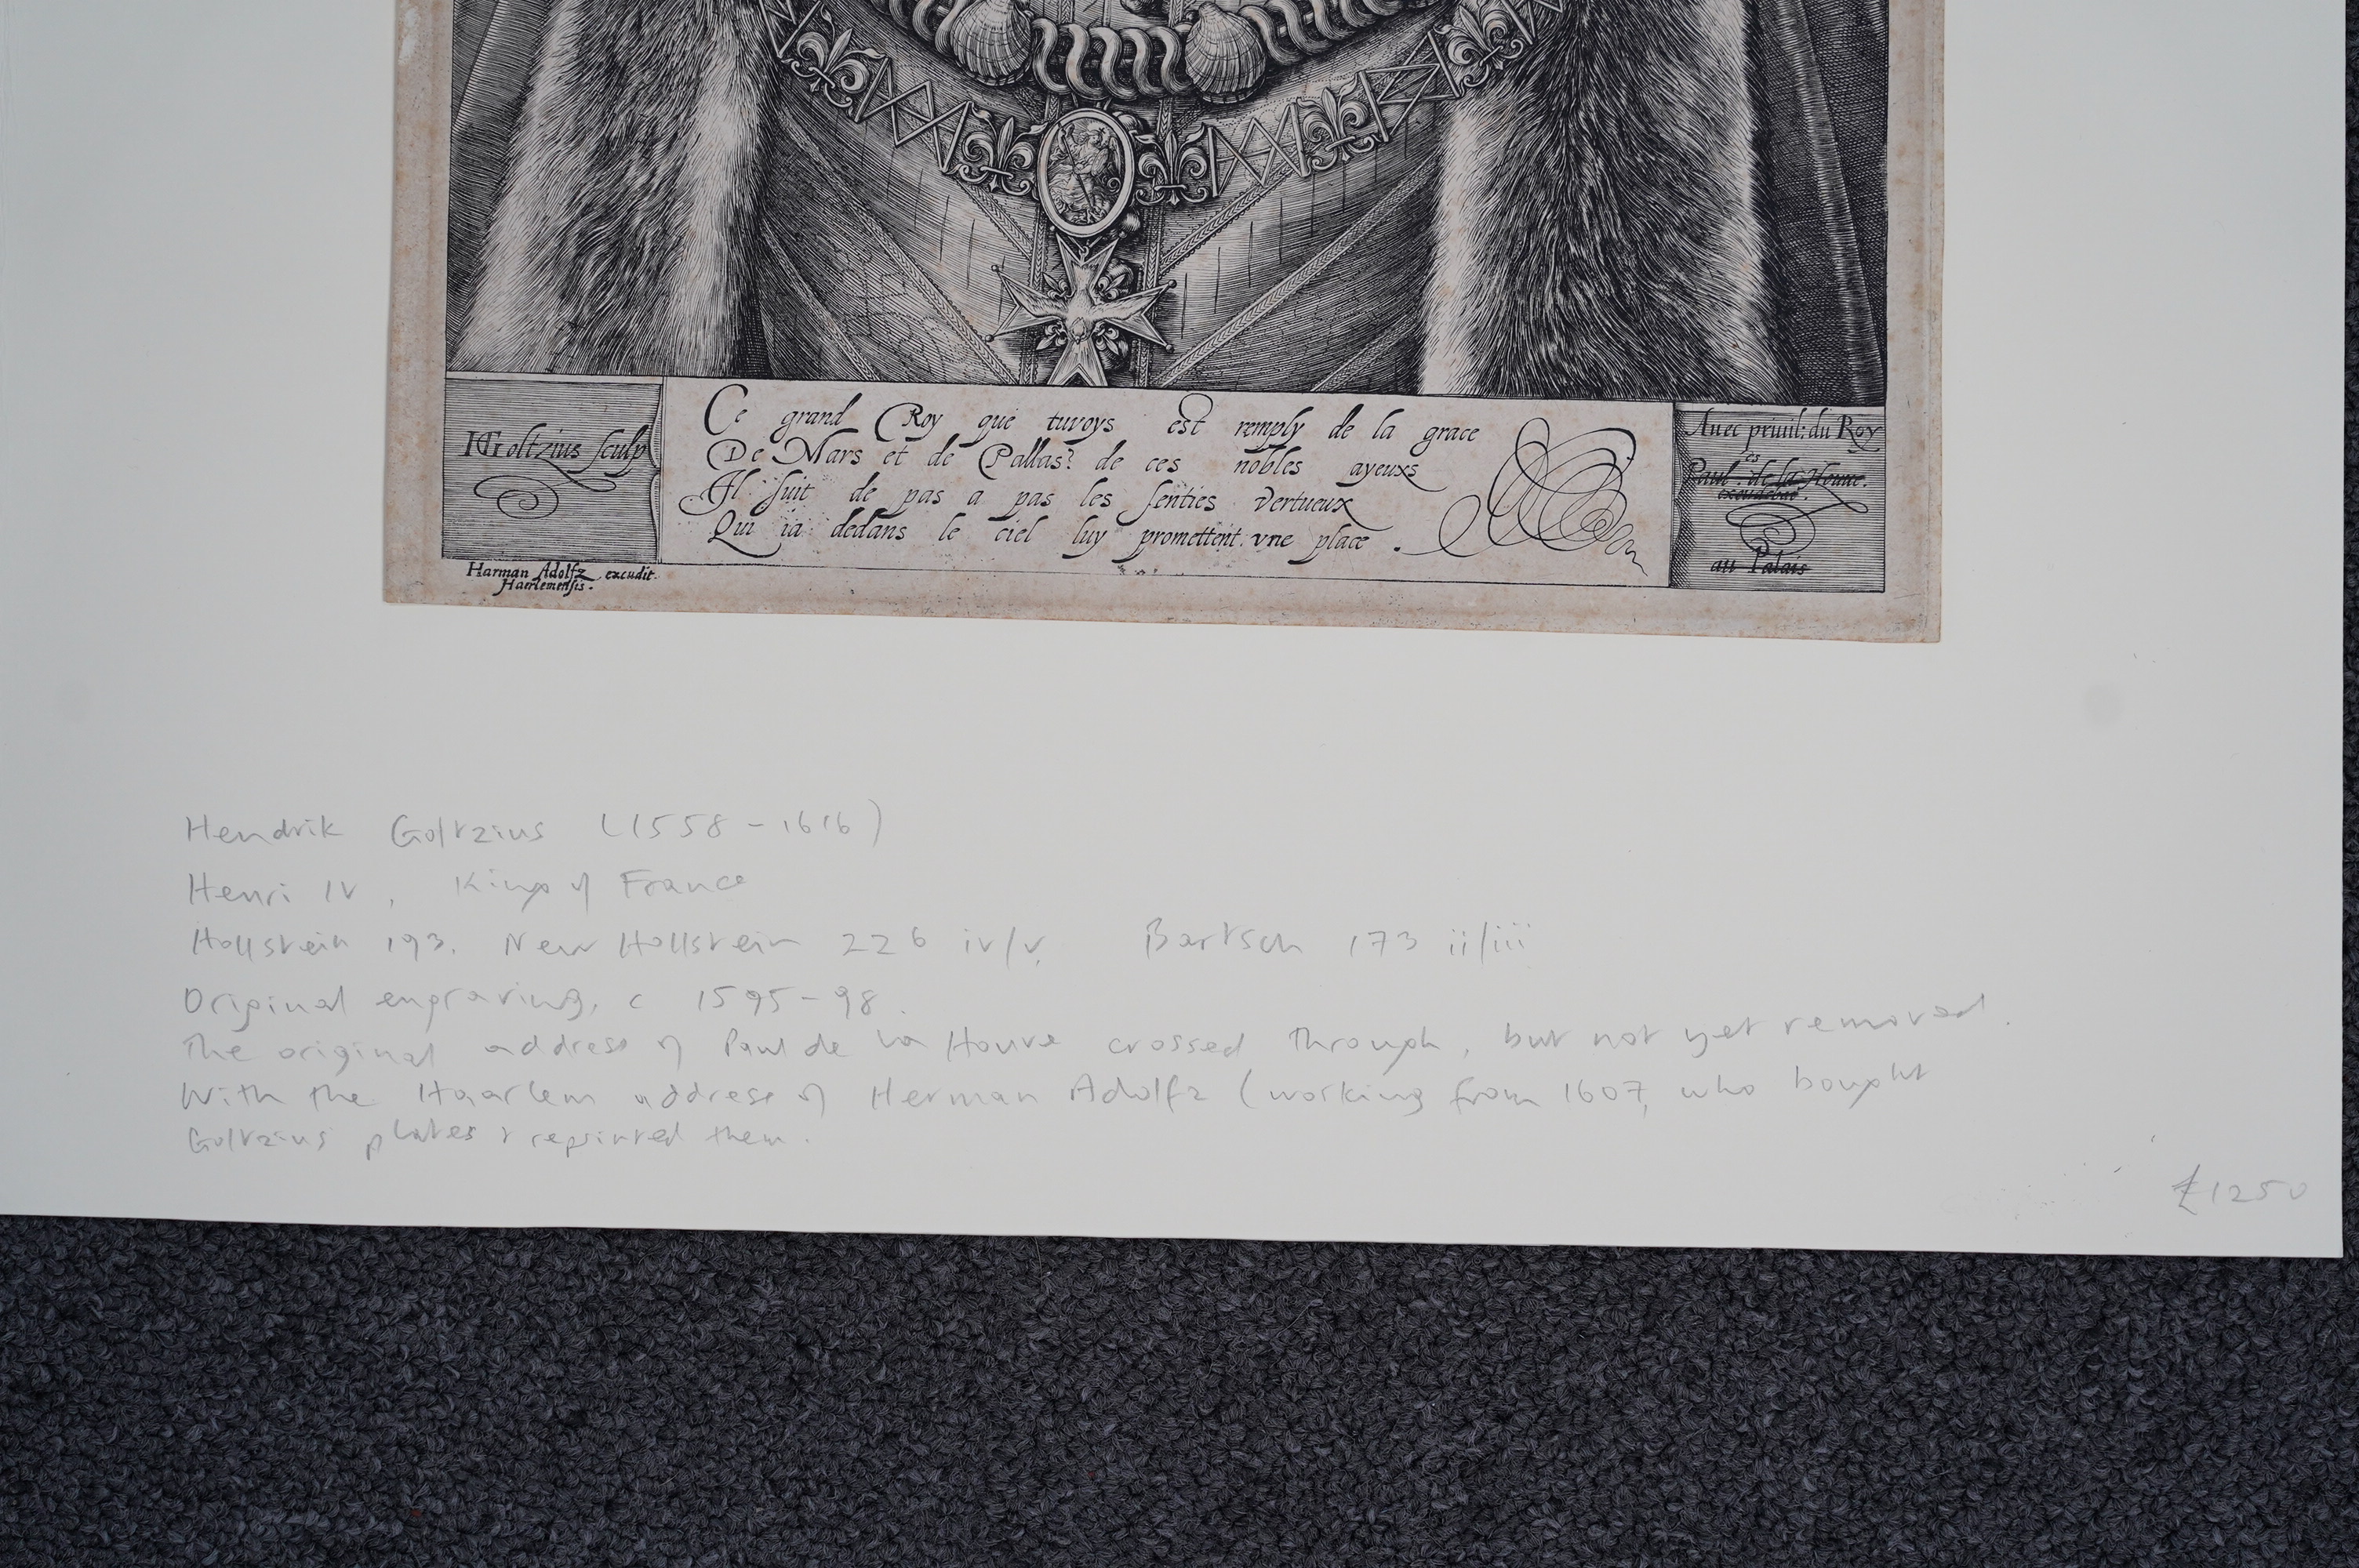 HGoltzius sculp.
Ce grand Roy que tuvoys est remply de la grace
De Mars et de Pallas: de ces nobles ayeuxs
Il suit de pas a pas les senties vertueux
Qui ia dedans le ciel luy promettent vne place.
Auec priuil: du Roy
es
Paul. de la Houue.
excudebat.
au Palais
Harman Adolfz excudit.
Haerlemensis.
Hendrik Goltzius (1558-1616)
Henri IV, King of France
Hollstein 193. New Hollstein 226 iv/v, Bartsch 173 ii/iii
Original engraving, c 1595-98.
The original address of Paul de la Houve crossed through, but not yet removed.
With the Haarlem address of Herman Adolfz (working from 1607, who bought
Goltzius plates & reprinted them.
£1250